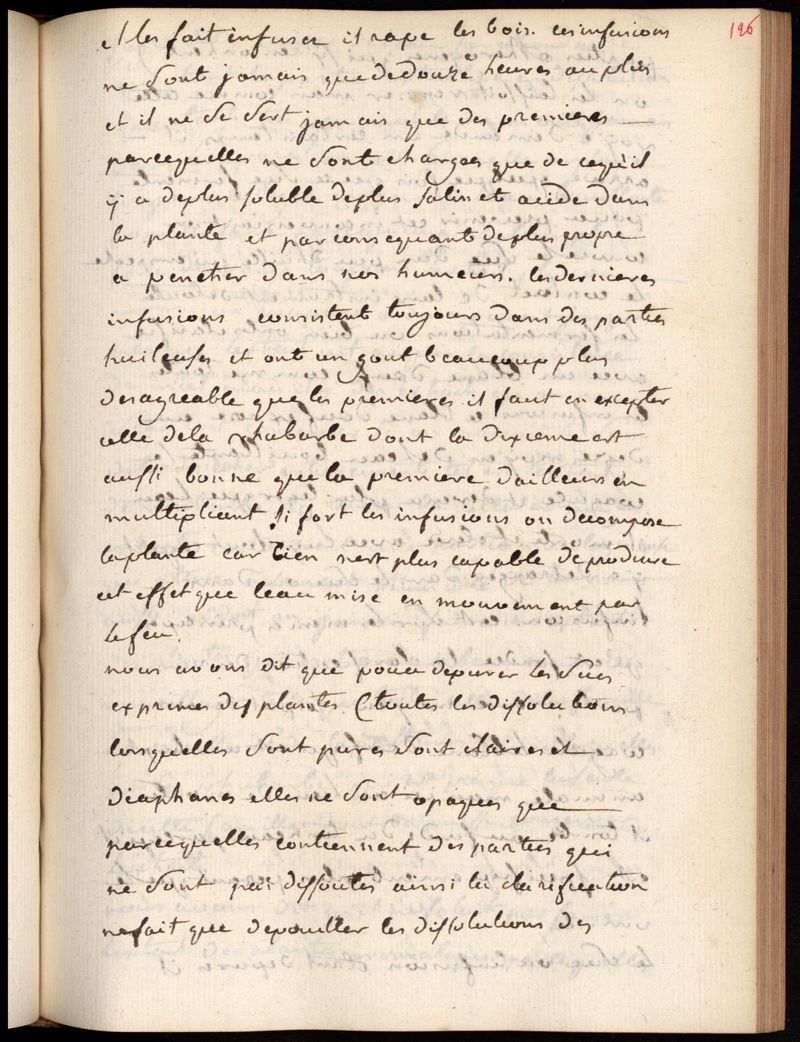 126
et les fait infuser il rape les bois. ces infusions
ne sont jamais que de douze heures au plus
et il ne se sert jamais que des premieres
parcequelles ne sont chargées que de cequ'il
ÿ a deplus soluble deplus salin et acide dans
la plante et par consequant deplus propre
a penetrer dans nos humeurs. les dernieres
infusions consistent toujours dans des parties
huileuses et ont un gout beaucoup plus
desagreable que les premieres il faut en excepter
celle dela rhabarbe dont la dixieme est
aussi bonne que la premiere dailleurs en
multipliant si fort les infusions on decompose
laplante car rien nest plus capable de produire
cet effet que leau mise en mouvement par
le feu.
nous avons dit que pour depurer les sucs
exprimes des plantes (toutes les dissolutions
lorsquelles sont pures sont claires et
diaphanes elles ne sont opaques que
parcequelles contiennent des parties qui
ne sont pas dissoutes ainsi la clarification
nefait que depouiller les dissolutions des